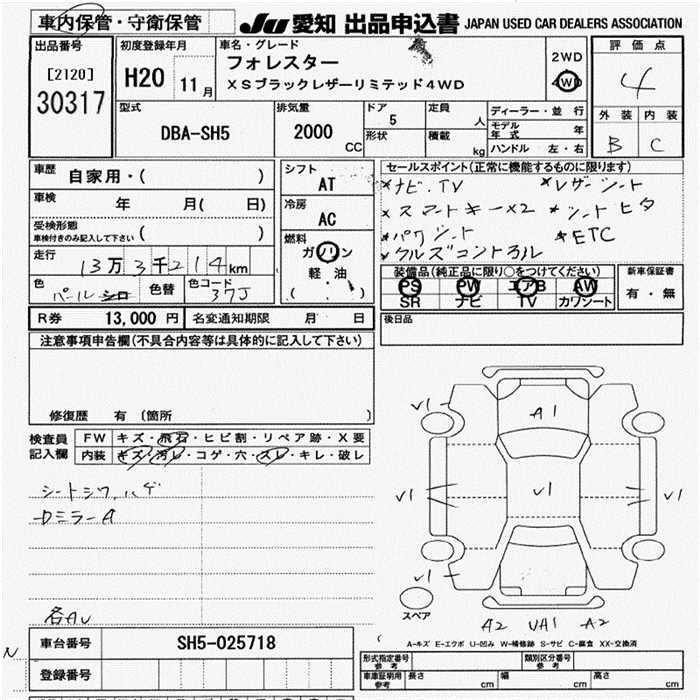 車内保管・守衛保管
JU 愛知 出品申込書 JAPAN USED CAR DEALERS ASSOCIATION
出品番号
[2120]
30317
初度登録年月
H20 11月
車名・グレード
フォレスター
XSブラックレザーリミテッド4WD
2WD
4WD
評価点
4
外装 内装
B C
型式
DBA-SH5
排気量
2000 CC
ドア
5
形状
定員
人
積載
kg
ディーラー・並行
モデル年式 年
ハンドル 左・右
車歴 自家用・( )
車検 年 月( 日)
受検形態
車検付きのみ記入して下さい ( )
走行
13万3千214km
色
パール シロ
色替
色コード
37J
シフト
AT
冷房
AC
燃料
ガソリン
軽油
( . )
セールスポイント(正常に機能するものに限ります)
*ナビ.TV *レザーシート
*スマートキー×2 *シートヒタ
*パワシート *ETC
*クルズコントロル
装備品(純正品に限り○をつけてください)
PS PW エアB AW
SR ナビ TV カワシート
新車保証書
有・無
R券 13,000円 名変通知期限 月 日
後日品
注意事項申告欄(不具合内容等は具体的に記入して下さい)
修復歴 有 (箇所 )
検査員記入欄
FW キズ・飛石・ヒビ割・リペア跡・X要
内装 キズ・汚レ・コゲ・穴・スレ・キレ・破レ
シートシワ,ハゲ
Dミラー A
各AU
N
V1
A1
V1
V1
V1
V1
スペア
A2 UA1 A2
車台番号 SH5-025718
登録番号
A-キズ E-エクボ U-凹み W-補修跡 S-サビ C-腐食 XX-交換済
形式指定番号 参考
類別区分番号 参考
車庫証明用 参考
長さ cm
幅 cm
高さ cm